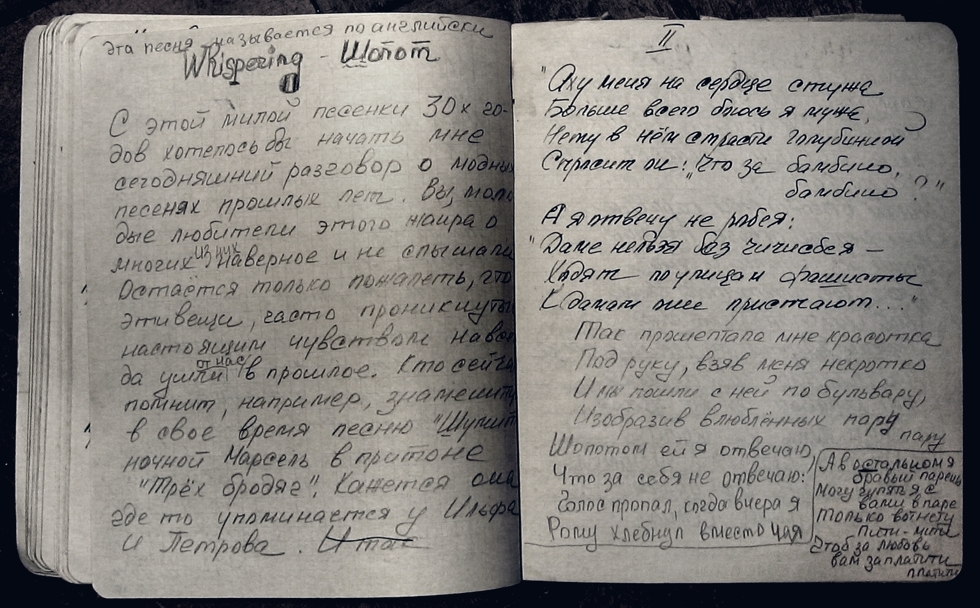 Эта песня называется по английски
Whispering - Шопот
С этой милой песенки 30х го-
дов хотелось бы начать мне
сегодняшний разговор о модных
песенях прошлых лет. Вы, моло
дые любители этого жанра о
многих из них наверное и не слышали
Остаётся только пожалеть, что
эти вещи, часто проникнутые
настоящим чувством навсег
да ушли от нас в прошлое. Кто сейча
помнит, например, знамениту
в свое время песню "Шумит
ночной Марсель в притоне
"Трёх бродяг". Кажется она
где то упоминается у Ильфа
и Петрова. И так
II
"Ах у меня на сердце стужа
Больше всего боюсь я мужа,
Нету в нём страсти голубиной
Спросит он: "Что за бамбино,
бамбино?"
А я отвечу не робея:
"Даме нельзя без чичисбея –
Ходят по улицам фашисты
К дамам они пристают..."
Так прошептала мне красотка
Под руку, взяв меня некротко
И мы пошли с ней по бульвару,
Изобразив влюблённых пару
пару
Шопотом ей я отвечаю,
Что за себя не отвечаю:
Голос пропал, когда вчера я
Рому хлебнул вместо чая
А в остальном я
бравый парень
Могу гулять я с
вами в паре
Только вот нету
Пити-мити
Чтоб за любовь
вам заплатити
платити